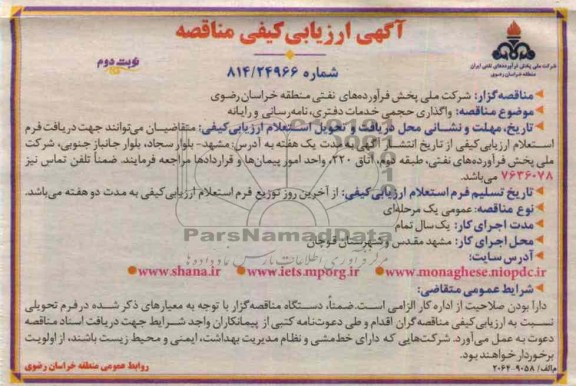 آگهی ارزیابی کیفی مناقصه
شرکت ملی پخش فرآورده‌های نفتی ایران
منطقه خراسان رضوی
نوبت دوم
شماره ۸۱۴/۲۴۹۶۶
مناقصه‌گزار: شرکت ملی پخش فرآورده‌های نفتی منطقه خراسان رضوی
موضوع مناقصه: واگذاری حجمی خدمات دفتری، نامه‌رسانی و رایانه
تاریخ، مهلت و نشانی محل دریافت و تحویل استعلام ارزیابی کیفی: متقاضیان می‌توانند جهت دریافت فرم
استعلام ارزیابی کیفی از تاریخ انتشار آگهی به مدت یک هفته به آدرس: مشهد- بلوار سجاد، بلوار جانباز جنوبی، شرکت
ملی پخش فرآورده‌های نفتی، طبقه دوم، اتاق ۲۲۰، واحد امور پیمان‌ها و قراردادها مراجعه فرمایند. ضمناً تلفن تماس نیز
۷۶۳۶۰۷۸ می‌باشد.
تاریخ تسلیم فرم استعلام ارزیابی کیفی: از آخرین روز توزیع فرم استعلام ارزیابی کیفی به مدت دو هفته می‌باشد.
نوع مناقصه: عمومی یک مرحله‌ای
مدت اجرای کار: یک سال تمام
محل اجرای کار: مشهد مقدس و شهرستان قوچان
ParsNamadData
مرکز فرآوری اطلاعات پارس نماد داده‌ها
آدرس سایت:
www.monaghese.niopdc.ir www.iets.mporg.ir www.shana.ir
شرایط عمومی متقاضی:
دارا بودن صلاحیت از اداره کار الزامی است. ضمناً، دستگاه مناقصه‌گزار با توجه به معیارهای ذکر شده در فرم تحویلی
نسبت به ارزیابی کیفی مناقصه‌گران اقدام و طی دعوت‌نامه کتبی از پیمانکاران واجد شرایط جهت دریافت اسناد مناقصه
دعوت به عمل می‌آورد. شرکت‌هایی که دارای خط‌مشی و نظام مدیریت بهداشت، ایمنی و محیط زیست باشند، از اولویت
برخوردار خواهند بود.
م‌الف/ ۹۰۵۸-۲۰۶۴
روابط عمومی منطقه خراسان رضوی